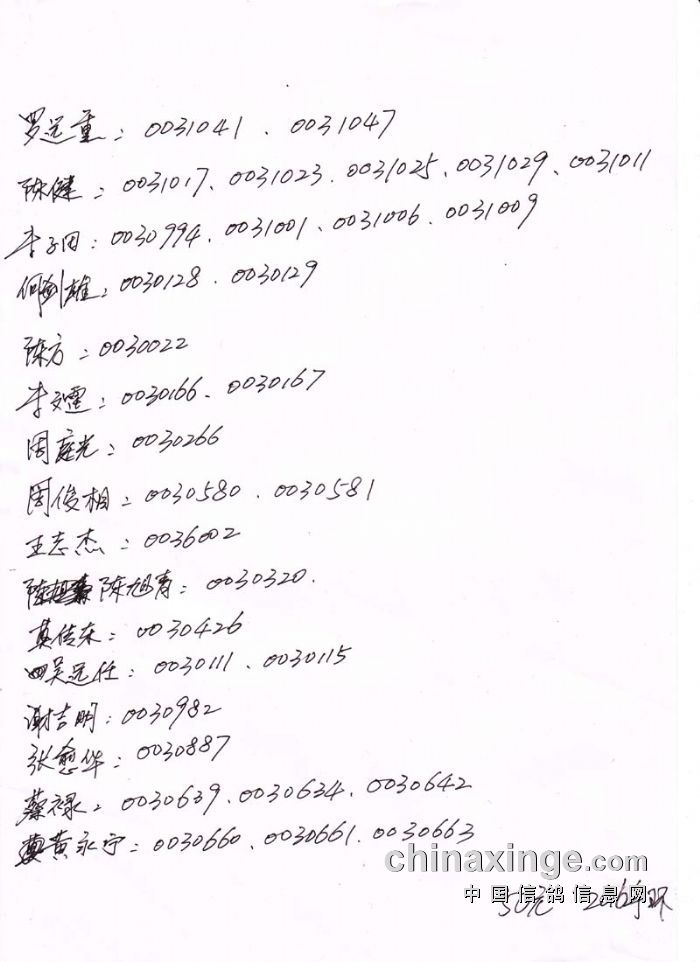 罗远重：0031041、0031047
陈健：0031017、0031023、0031025、0031029、0031011
李子田：0030994、0031001、0031006、0031009
何剑雄：0030128、0030129
陈方：0030022
李文霞：0030166、0030167
周庭光：0030266
周俊相：0030580、0030581
王志杰：0036002
陈旭青：0030320.
莫传东：0030426
吴远任：0030111、0030115
谢吉明：0030982
张愈华：0030887
蔡禄：0030639、0030634、0030642
黄永宁：0030660、0030661、0030663
chinaxinge.com
中国信鸽信息网
50元 2016年环